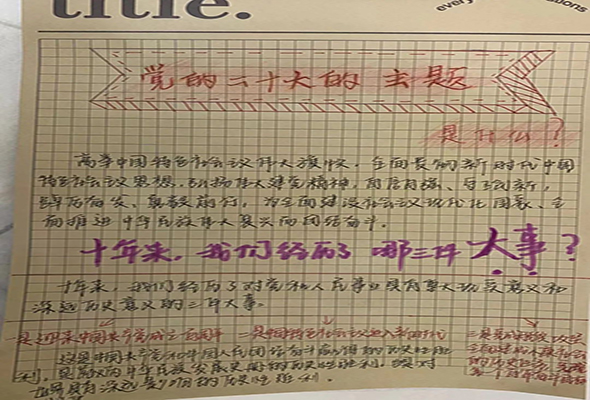 title.
every
ons
党的二十大的主题
是什么?
高举中国特色社会主义伟大旗帜,全面贯彻新时代中国
特色社会主义思想,弘扬伟大建党精神,自信自强、守正创新,
踔厉奋发、勇毅前行,为全面建设社会主义现代化国家、全
面推进中华民族伟大复兴而团结奋斗。
十年来,我们经历了哪三件大事?
十年来,我们经历了对党和人民事业具有重大现实意义和
深远历史意义的三件大事。
一是迎来中国共产党成立一百周年 二是中国特色社会主义进入新时代 三是完成脱贫攻坚
这是中国共产党和中国人民团结奋斗赢得的历史性胜
利,是彪炳中华民族发展史册的历史性胜利,也是对
世界具有深远影响的历史性胜利。